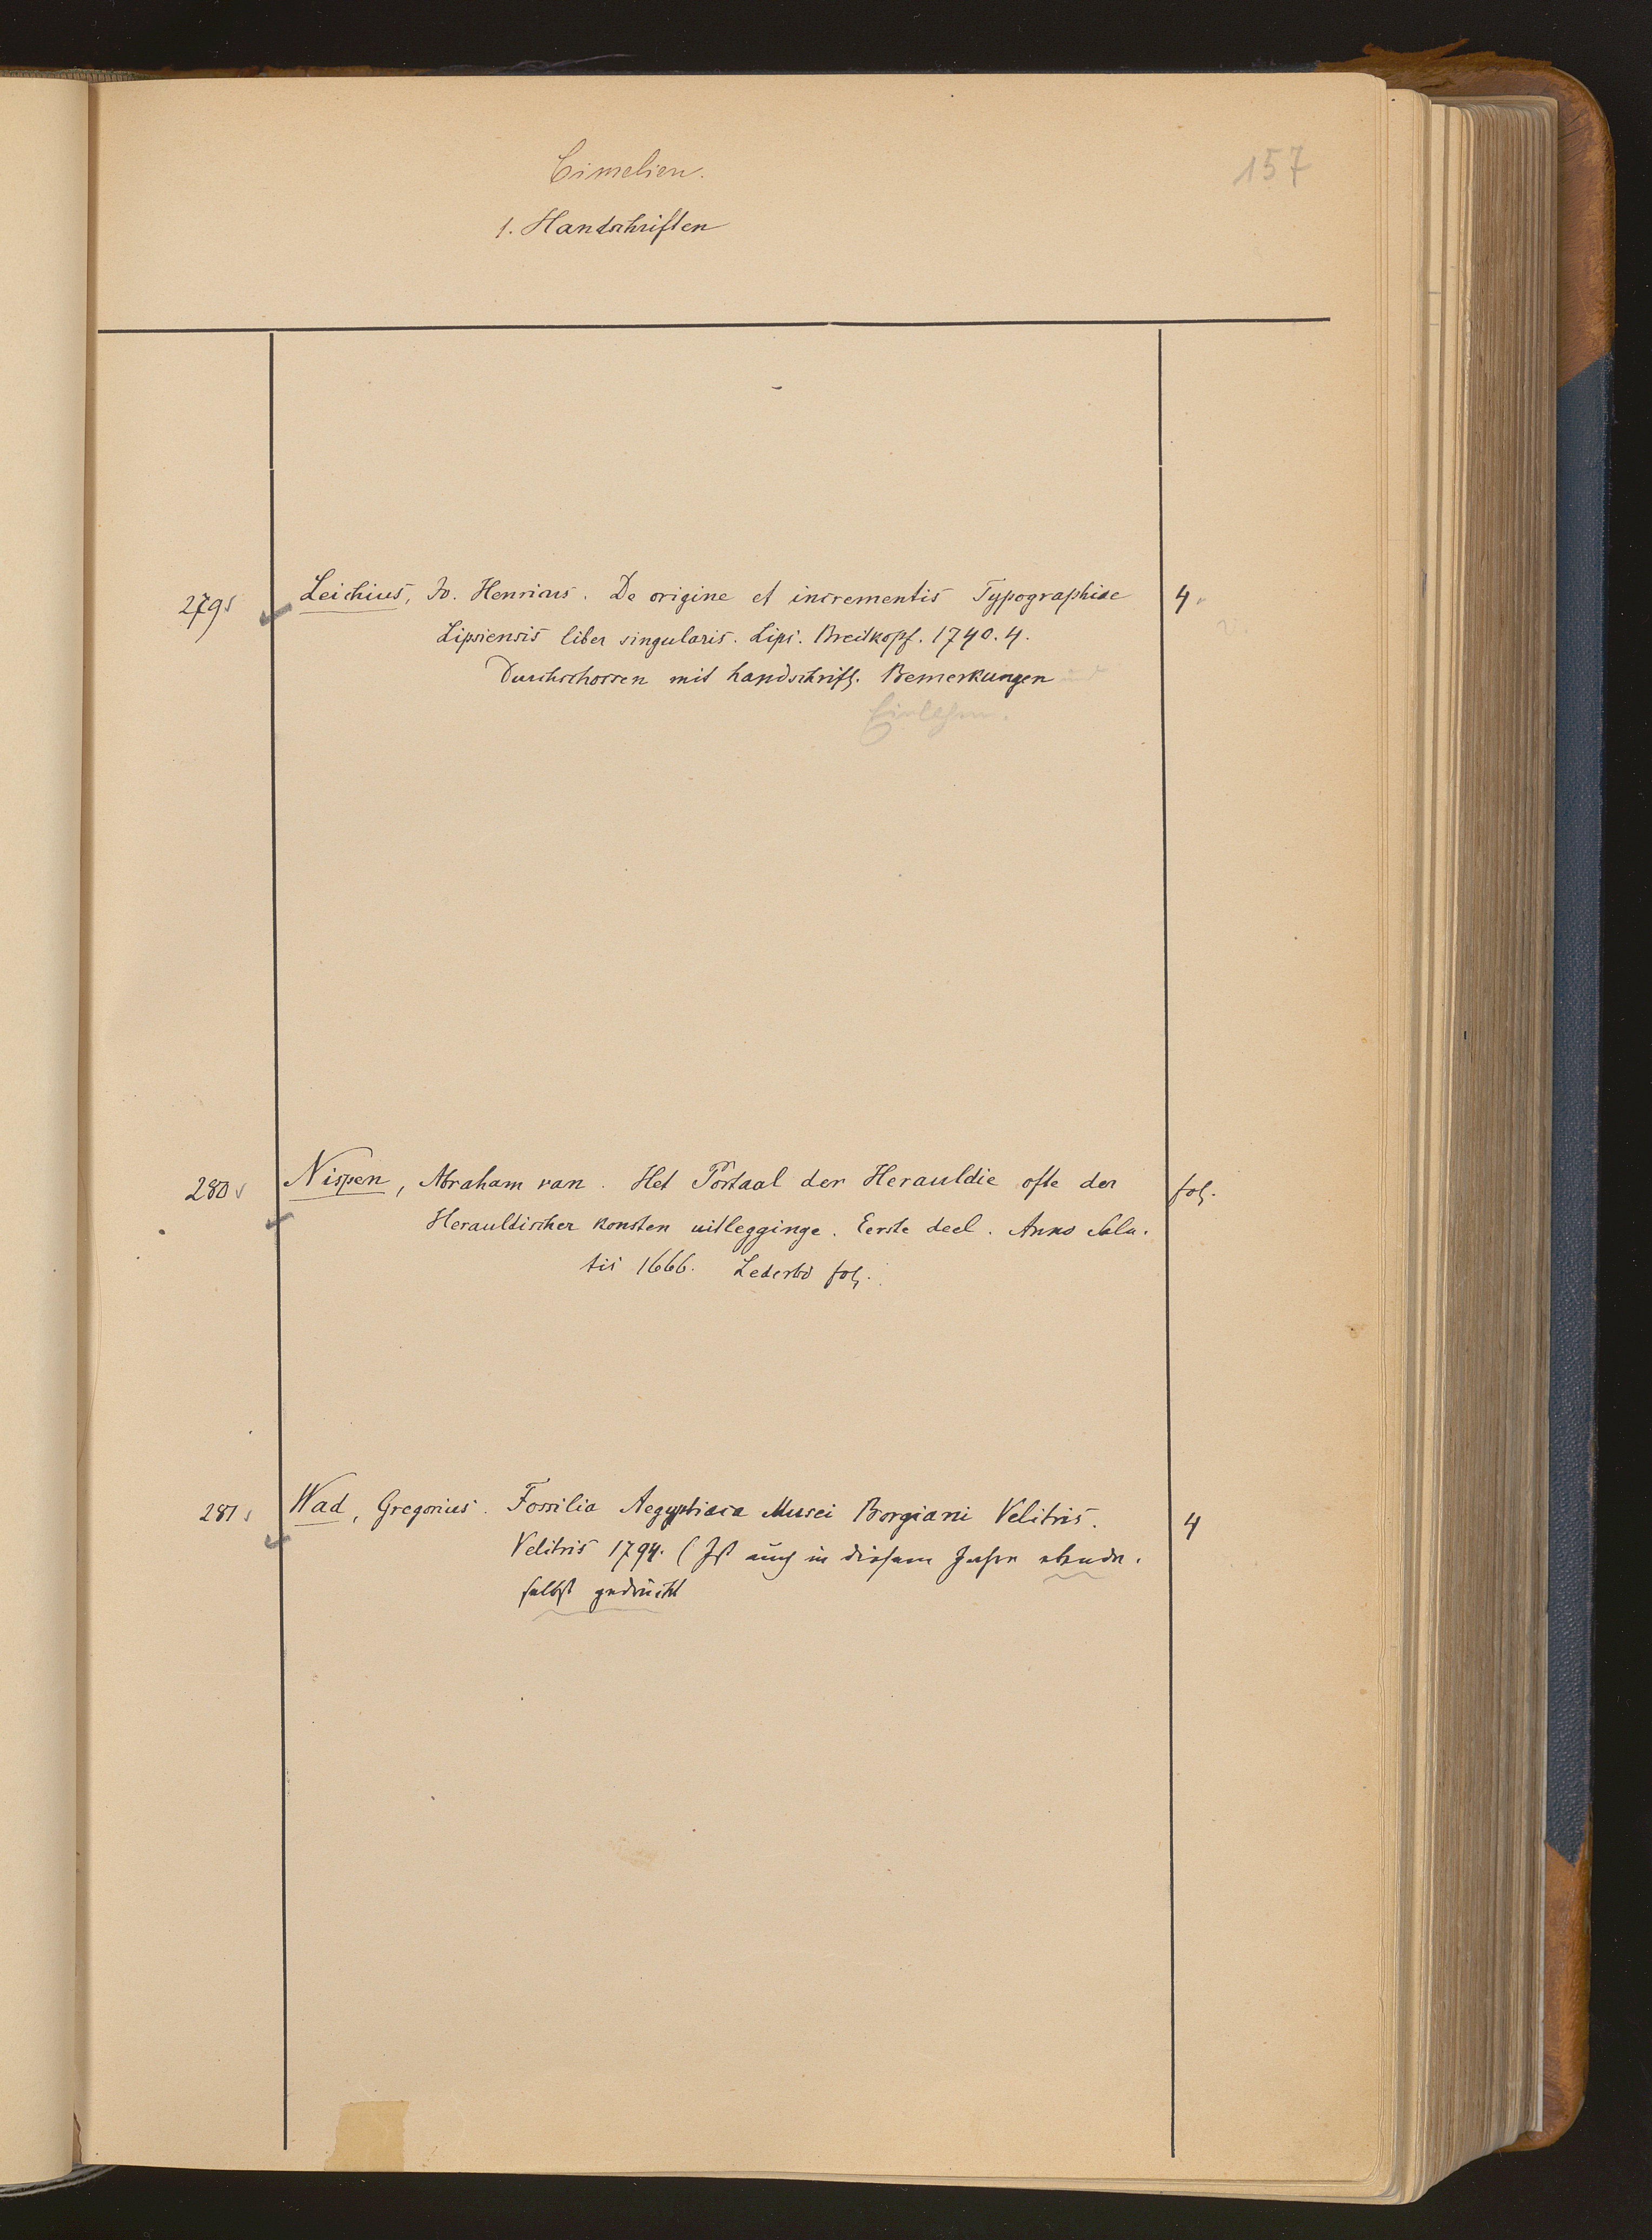 157
Cimelien.
1. Handschriften
279 Leichius, Jo. Henricus. De origine et incrementis Typographiae 4.
Lipsiensis liber singularis. Lips. Breitkopf. 1740. 4.
Durchschossen mit handschriftl. Bemerkungen und
280 Nispen, Abraham van. Het Portaal der Herauldie ofte der fol.
Herauldischer konsten uitlegginge. Eerste deel. Anno Salu-
tis 1666. Lederbd fol.
281 Wad, Gregorius. Fossilia Aegyptiaca Musei Borgiani Velitris. 4
Velitris 1794. (Ist auch in diesem Jahre ebenda-
selbst gedruckt